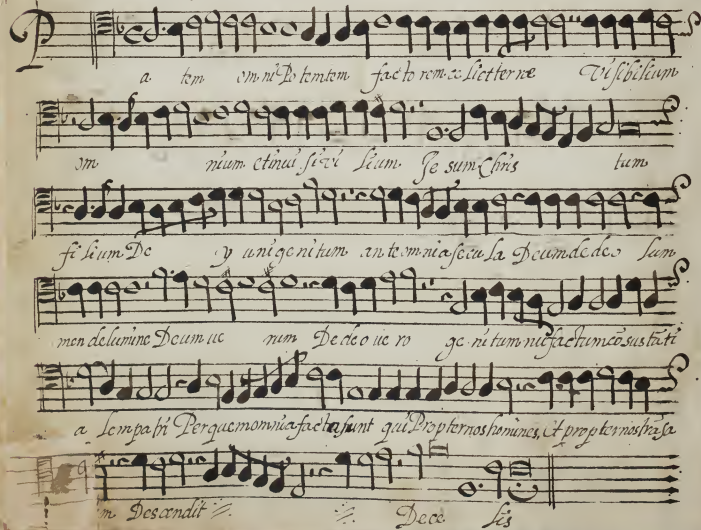 P
a tem omni Po temtem facto rem cæ liet terræ Visibilium
om nium et inui si vi lium Je sum Chris tum
fi lium De y uni ge ni tum an te omnia secu la Deum de deo lum
men de lumine Deum ue rum De deo ue ro ge ni tum nō factum cō sustāti
a lem patri Per quem omnia facta sunt qui Propter nos homines, et propter nostrā sa
m Descendit Dece lis